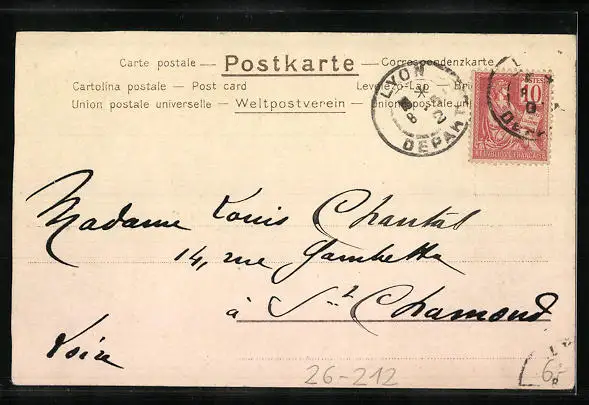 Carte postale — Postkarte — Correspondenzkarte
Cartolina postale — Post card Levelező-Lap
Union postale universelle — Weltpostverein — Union postale
LYON
DEPART
POSTES
10
RÉPUBLIQUE FRANÇAISE
Madame Louis Chantal
14, rue Gambetta
à St Chamond
Loire
26-212
6.-